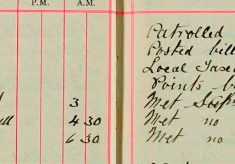 P.M. A.M.
Patrolled
Posted bill
Local
Points
3 Met
ll 4 30 Met no
6 30 Met no